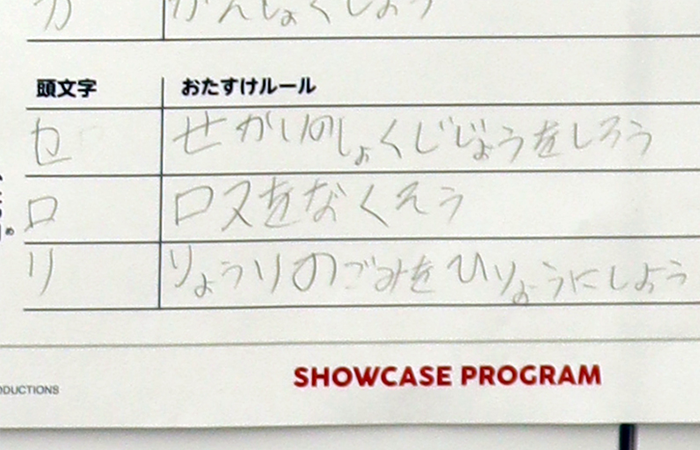 頭文字 おたすけルール
セ せかいのしょくじじょうをしろう
ロ ロスをなくそう
リ りょうりのごみをひりょうにしよう
ODUCTIONS
SHOWCASE PROGRAM